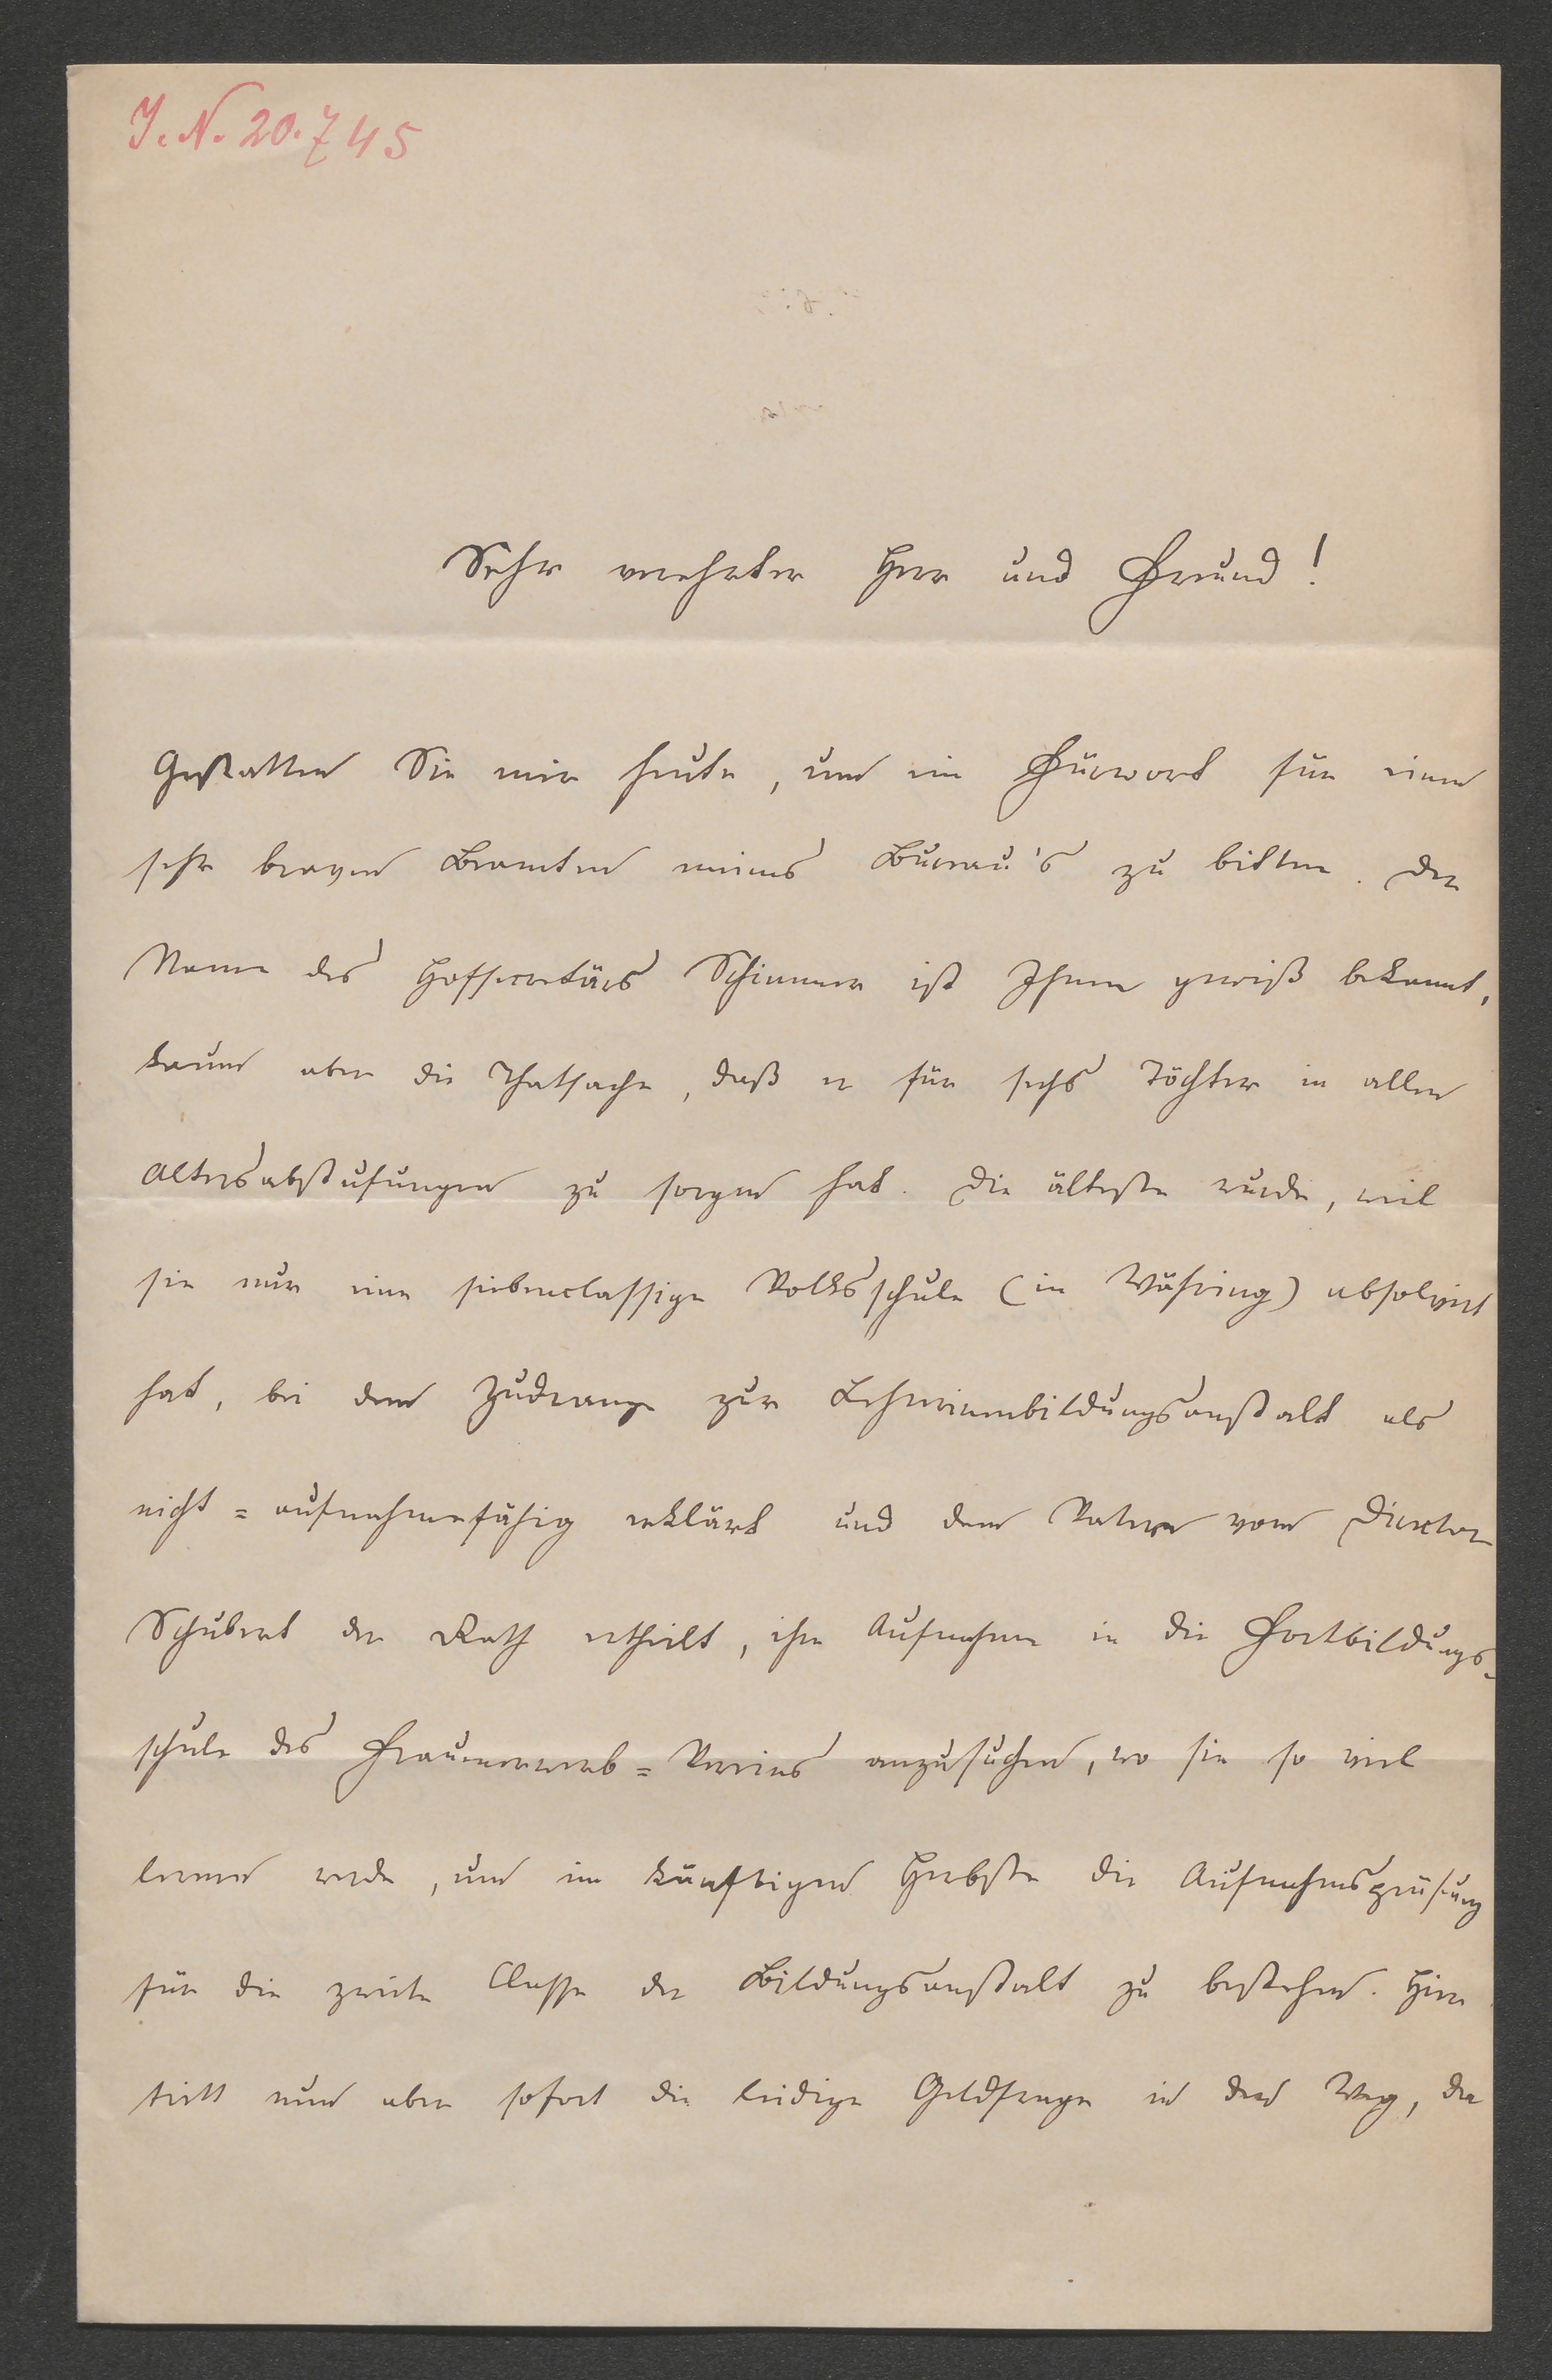 I. N. 20.745
Sehr verehrter Herr und Freund!
Gestatten Sie mir heute, um ein Fürwort für einen
sehr braven Beamten meines Bureau's zu bitten. Der
Name des Hofsecretärs Schimmer ist Ihnen gewiß bekannt,
kaum aber die Thatsache, daß er für sechs Töchter in allen
Altersabstufungen zu sorgen hat. Die älteste wurde, weil
sie nur eine siebenclassige Volksschule (in Währing) absolvirt
hat, bei dem Zudrange zur Lehrerinnenbildungsanstalt als
nicht=aufnahmsfähig erklärt und dem Vater vom Director
Schubert der Rath ertheilt, ihre Aufnahme in die Fortbildungs-
schule des Frauenerwerb=Vereins anzusuchen, wo sie so viel
lernen werde, um im künftigen Herbste die Aufnahmsprüfung
für die zweite Classe der Bildungsanstalt zu bestehen. Hier
tritt nun aber sofort die leidige Geldfrage in den Weg, der